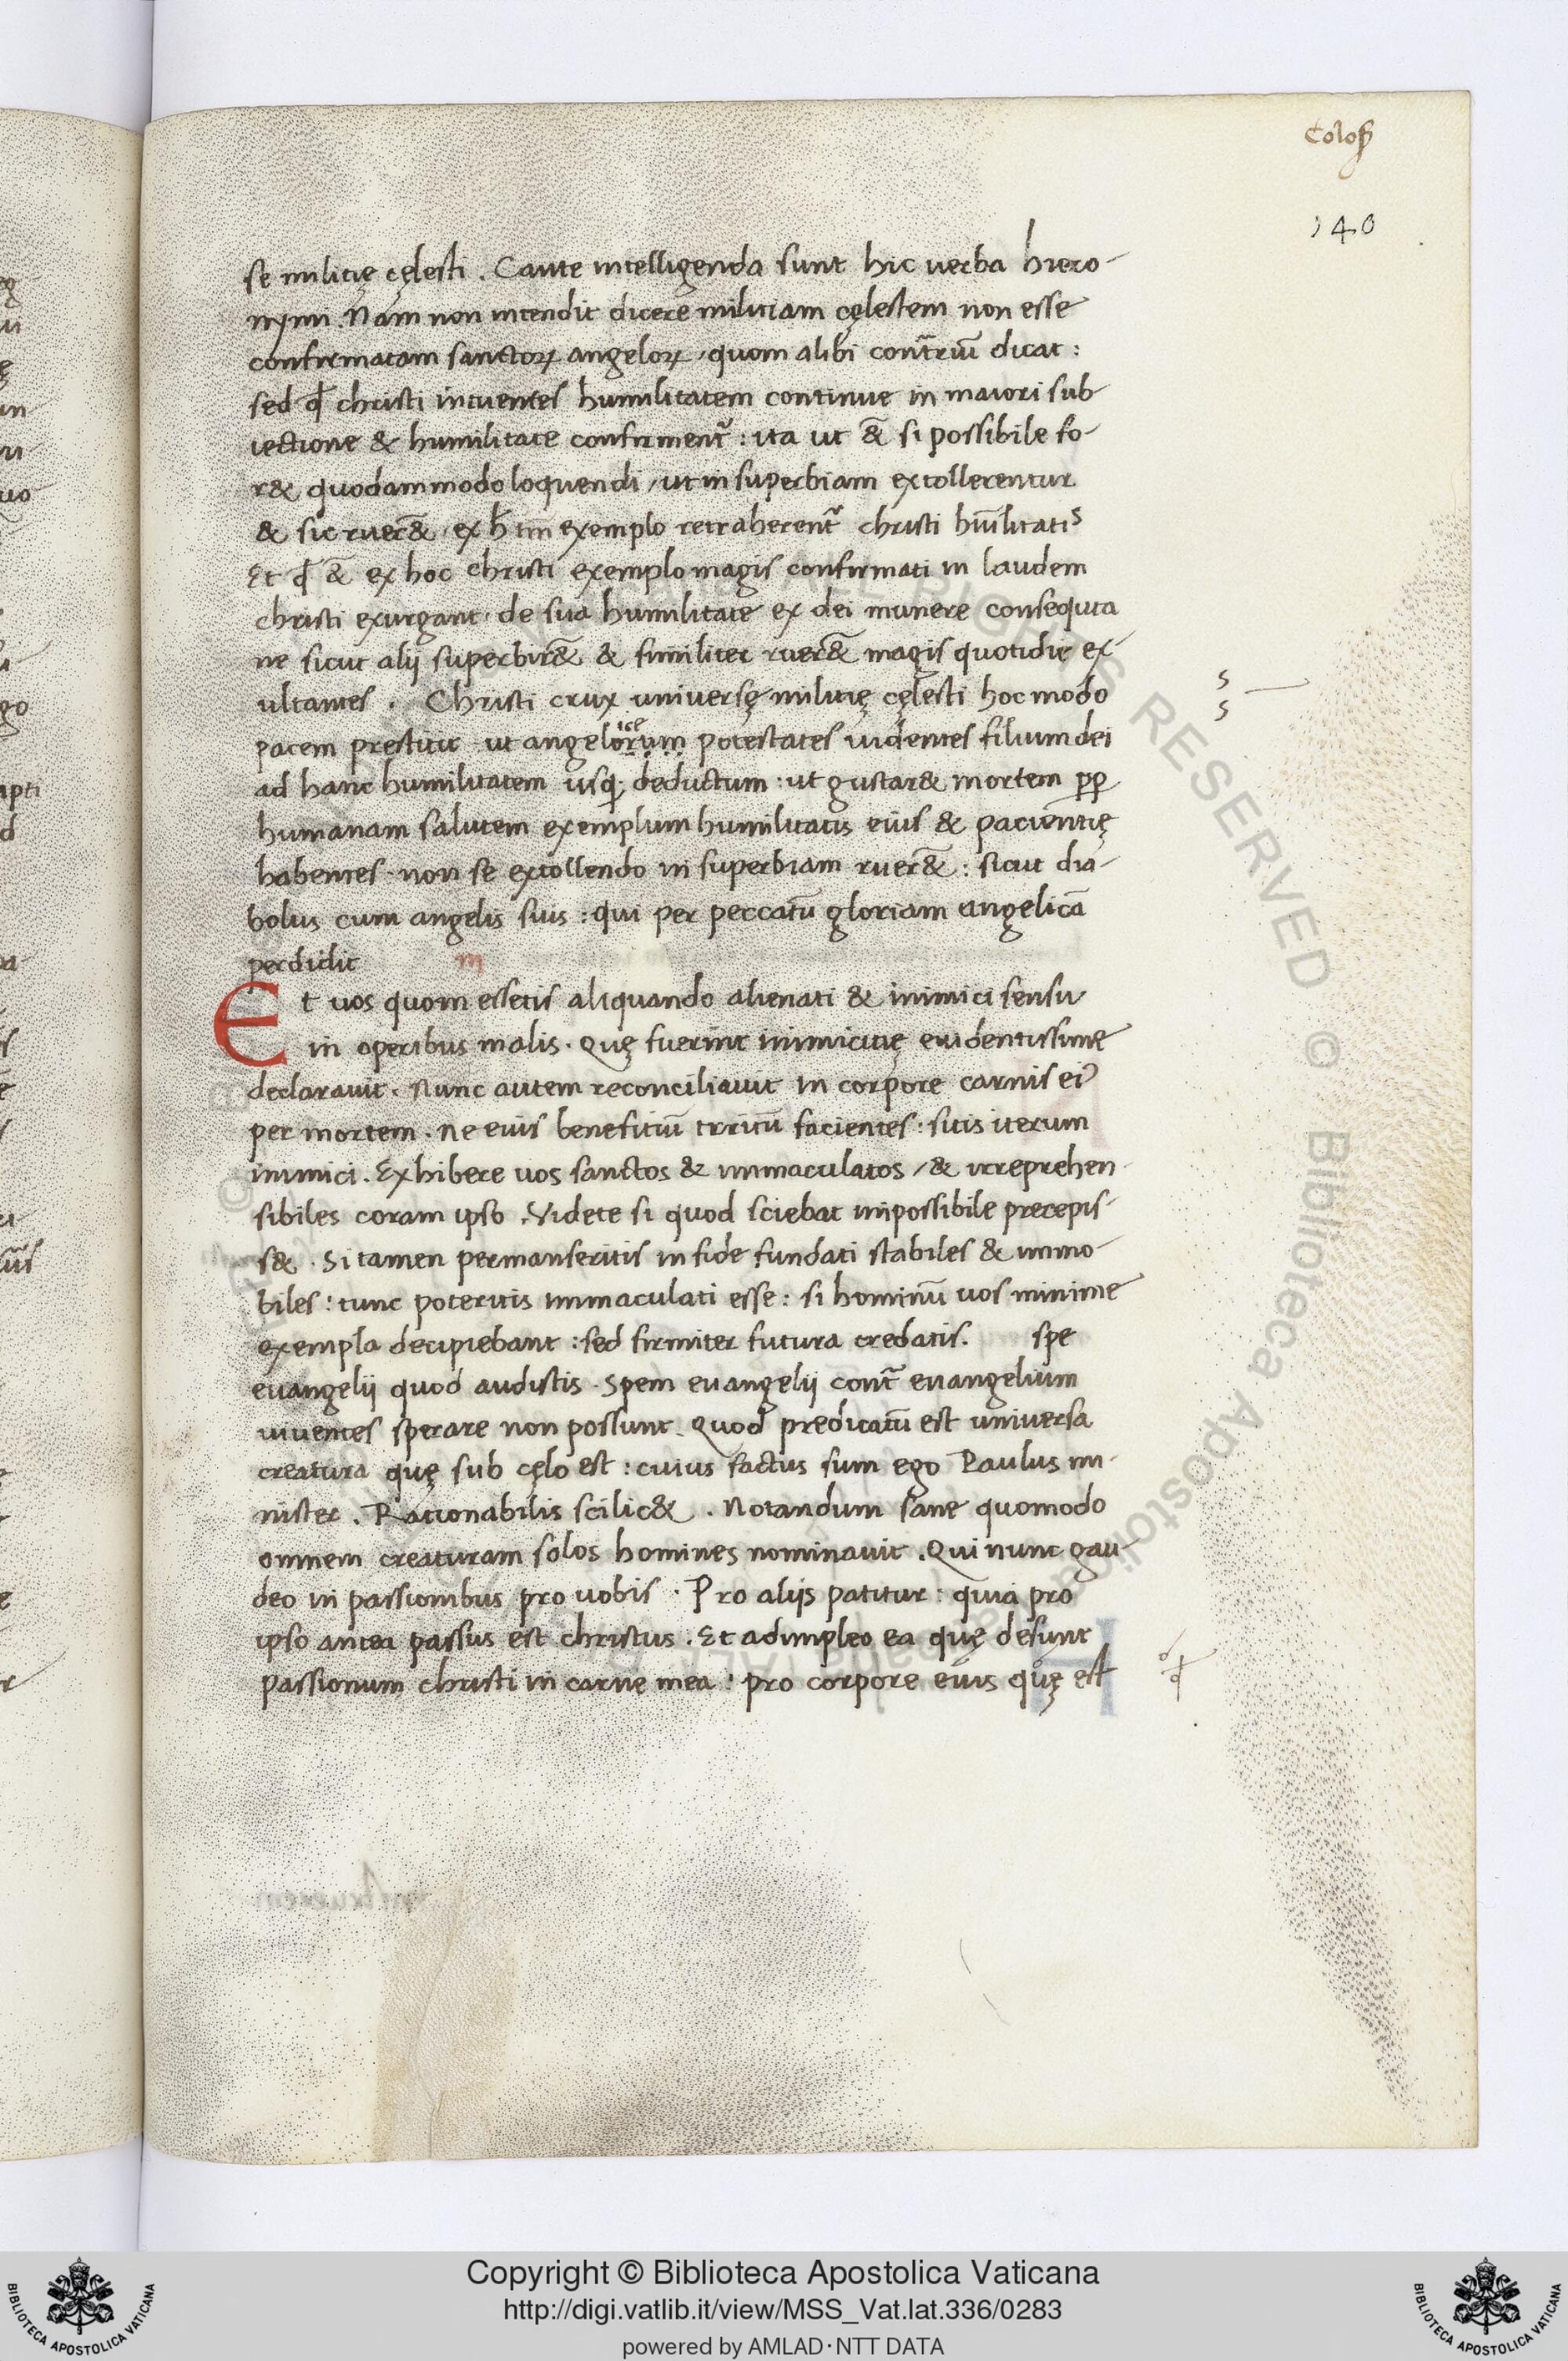 Coloß
140
se militię cęlesti . Caute intelligenda sunt hic uerba hiero-
nymi . Nam non intendit dicere militiam cęlestem non esse
confirmatam sanctoꝝ angeloꝝ, quom alibi cont̃riũ dicat :
sed ꝙ christi intuentes humilitatem continue in maiori sub
iectione & humilitate confirment᷑ : ita ut &̃ si possibile fo-
r& quodammodo loquendi, ut in superbiam extollerentur
& sic ruer&̃ ex h̃ tm̃ exemplo retraherent᷑ christi hũilitatis
Et ꝙ &̃ ex hoc christi exemplo magis confirmati in laudem
christi exurgant . de sua humilitate ex dei munere consequta
ne sicut alij superbir&̃ & similiter ruer&̃ magis quotidie ex-
ultantes . Christi crux uniuersę militię cęlesti hoc modo
pacem prestitit . ut angelorum ice potestates uidentes filium dei
ad hanc humilitatem usq; deductum : ut gustar& mortem ꝓꝑ
humanam salutem exemplum humilitatis eius & pacientię
habentes . non se extollendo in superbiam ruer&̃ : sicut dia-
bolus cum angelis suis : qui per peccatũ gloriam angelicã
perdidit
m
Et uos quom essetis aliquando alienati & inimici sensu
in operibus malis . Quę fuerint inimicitię euidentissime
declarauit . Nunc autem reconciliauit in corpore carnis ei᾽
per mortem . ne eius benefitiũ irritũ facientes : sitis iterum
inimici . Exhibere uos sanctos & immaculatos, & irreprehen-
sibiles coram ipso . Videte si quod sciebat impossibile precepis-
s& . Si tamen permanseritis in fide fundati stabiles & immo-
biles : tunc poteritis immaculati esse : si hominũ uos minime
exempla decipiebant : sed firmiter futura credatis . spe
euangelij quod audistis . Spem euangelij cont᷑ euangelium
uiuentes sperare non possunt . Quod predicatũ est uniuersa
creatura quę sub cęlo est : cuius factus sum ego Paulus mi-
nister . Rationabilis scilic& . Notandum sane quomodo
omnem creaturam solos homines nominauit . Qui nunc gau-
deo in passionibus pro uobis . Pro alijs patitur : quia pro
ipso antea passus est christus . Et adimpleo ea quę desunt
passionum christi in carne mea : pro corpore eius quę est
ALL RIGHTS RESERVED © Biblioteca Apostolica Vaticana
BIBLIOTECA APOSTOLICA VATICANA
Copyright © Biblioteca Apostolica Vaticana
http://digi.vatlib.it/view/MSS_Vat.lat.336/0283
powered by AMLAD·NTT DATA
BIBLIOTECA APOSTOLICA VATICANA